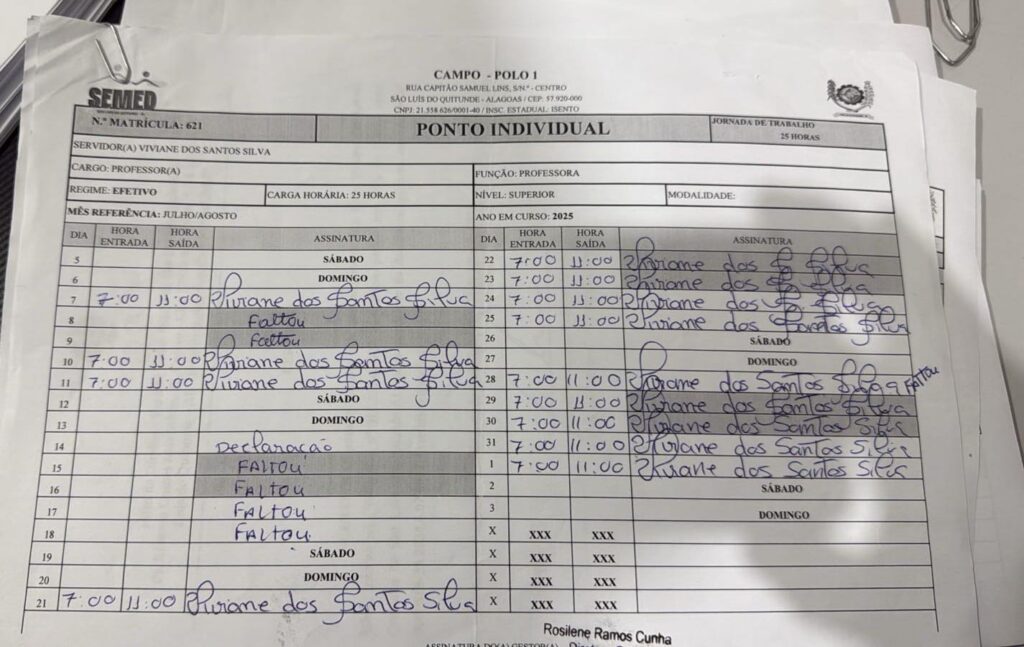 SEMED
CAMPO - POLO 1
RUA CAPITÃO SAMUEL LINS, S/N.º - CENTRO
SÃO LUÍS DO QUITUNDE - ALAGOAS / CEP: 57.920-000
CNPJ: 21.558.626/0001-40 / INSC. ESTADUAL. ISENTO
N.º MATRÍCULA: 621 PONTO INDIVIDUAL JORNADA DE TRABALHO
25 HORAS
SERVIDOR(A) VIVIANE DOS SANTOS SILVA
CARGO: PROFESSOR(A) FUNÇÃO: PROFESSORA
REGIME: EFETIVO CARGA HORÁRIA: 25 HORAS NÍVEL: SUPERIOR MODALIDADE:
MÊS REFERÊNCIA: JULHO/AGOSTO ANO EM CURSO: 2025
DIA HORA ENTRADA HORA SAÍDA ASSINATURA
5 SÁBADO
6 DOMINGO
7 7:00 11:00 Viviane dos Santos Silva
8 Faltou
9 Faltou
10 7:00 11:00 Viviane dos Santos Silva
11 7:00 11:00 Viviane dos Santos Silva
12 SÁBADO
13 DOMINGO
14 Declaração
15 FALTOU
16 FALTOU
17 FALTOU
18 FALTOU
19 SÁBADO
20 DOMINGO
21 7:00 11:00 Viviane dos Santos Silva
DIA HORA ENTRADA HORA SAÍDA ASSINATURA
22 7:00 11:00 Viviane dos S Silva
23 7:00 11:00 Viviane dos S Silva
24 7:00 11:00 Viviane dos S Silva
25 7:00 11:00 Viviane dos Santos Silva
26 SÁBADO
27 DOMINGO
28 7:00 11:00 Viviane dos Santos Silva Faltou
29 7:00 11:00 Viviane dos Santos Silva
30 7:00 11:00 Viviane dos Santos Silva
31 7:00 11:00 Viviane dos Santos Silva
1 7:00 11:00 Viviane dos Santos Silva
2 SÁBADO
3 DOMINGO
X XXX XXX
X XXX XXX
X XXX XXX
X XXX XXX
Rosilene Ramos Cunha
ASSINATURA DO(A) GESTOR(A)